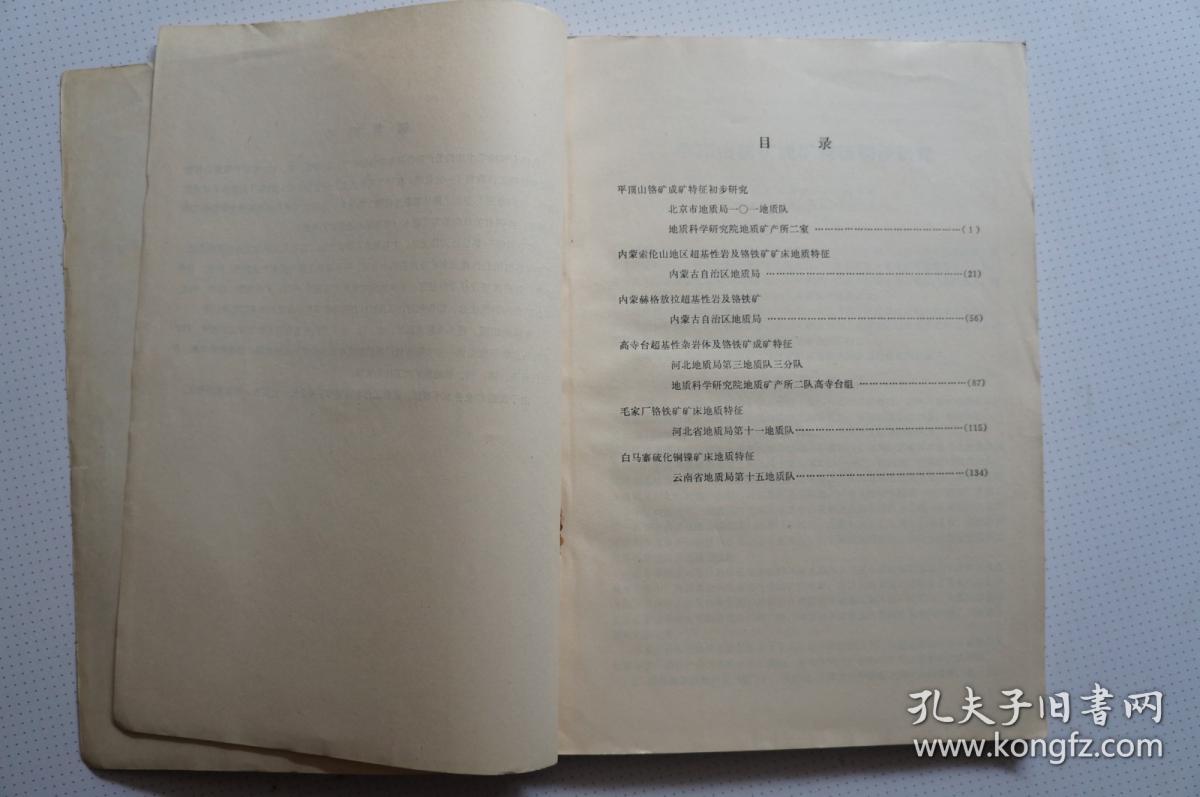 目 录
平顶山铬矿成矿特征初步研究
北京市地质局一〇一地质队
地质科学研究院地质矿产所二室 ……………………………………(1)
内蒙索伦山地区超基性岩及铬铁矿矿床地质特征
内蒙古自治区地质局 ……………………………………………(21)
内蒙赫格敖拉超基性岩及铬铁矿
内蒙古自治区地质局 ……………………………………………(56)
高寺台超基性杂岩体及铬铁矿成矿特征
河北地质局第三地质队三分队
地质科学研究院地质矿产所二队高寺台组 ……………………(87)
毛家厂铬铁矿矿床地质特征
河北省地质局第十一地质队……………………………………(115)
白马寨硫化铜镍矿床地质特征
云南省地质局第十五地质队……………………………………(134)
孔夫子旧书网
www.kongfz.com